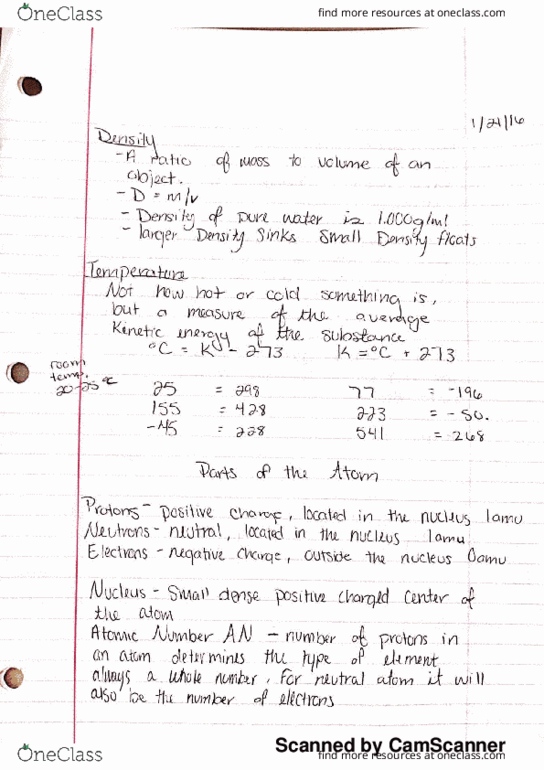 OneClass find more resources at oneclass.com
1/21/16
Density
- A ratio of mass to volume of an
object.
- D = m/v
- Density of pure water is 1.000g/ml
- larger Density Sinks Small Density floats
Temperature
Not how hot or cold something is,
but a measure of the average
Kinetic energy of the substance
°C = K - 273 K = °C + 273
room
temp.
20-25°C
25 = 298 77 = -196
155 = 428 223 = - 50.
-45 = 228 541 = 268
Parts of the Atom
Protons - positive charge, located in the nucleus 1amu
Neutrons - neutral, located in the nucleus 1amu
Electrons - negative charge, outside the nucleus 0amu
Nucleus - Small dense positive charged center of
the atom
Atomic Number AN - number of protons in
an atom determines the type of element
always a whole number, for neutral atom it will
also be the number of electrons
Scanned by CamScanner
OneClass find more resources at oneclass.com